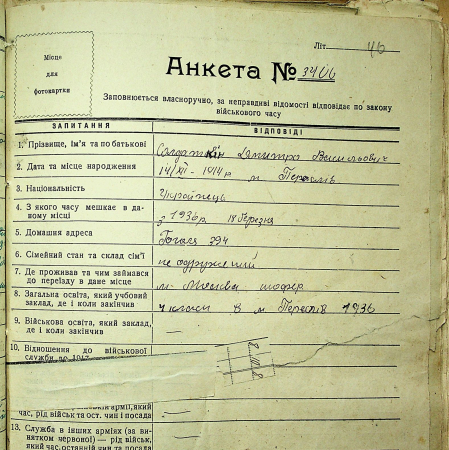 Місце
для
фотокартки
Літ. 46
Анкета № 3406
Заповнюється власноручно, за неправдиві відомості відповідає по закону
військового часу
ЗАПИТАННЯ
ВІДПОВІДІ
1. Прізвище, ім'я та по батькові
Дмитро Васильович
2. Дата та місце народження
14/XI - 1914 р м
3. Національність
Українець
4. З якого часу мешкає в да-
ному місці
з 1936 р 18 березня
5. Домашня адреса
Гоголя 394
6. Сімейний стан та склад сім'ї
не одружений
7. Де проживав та чим займався
до переїзду в дане місце
м Москва шофер
8. Загальна освіта, який учбовий
заклад, де і коли закінчив
4 класи в м 1936
9. Військова освіта, який заклад,
де і коли закінчив
—
10. Відношення до військової
служби до
армії, який
час, рід військ та ост. чин і посада
—
13. Служба в інших арміях (за ви-
нятком червоної) — рід військ,
який час, останній чин та посада
—